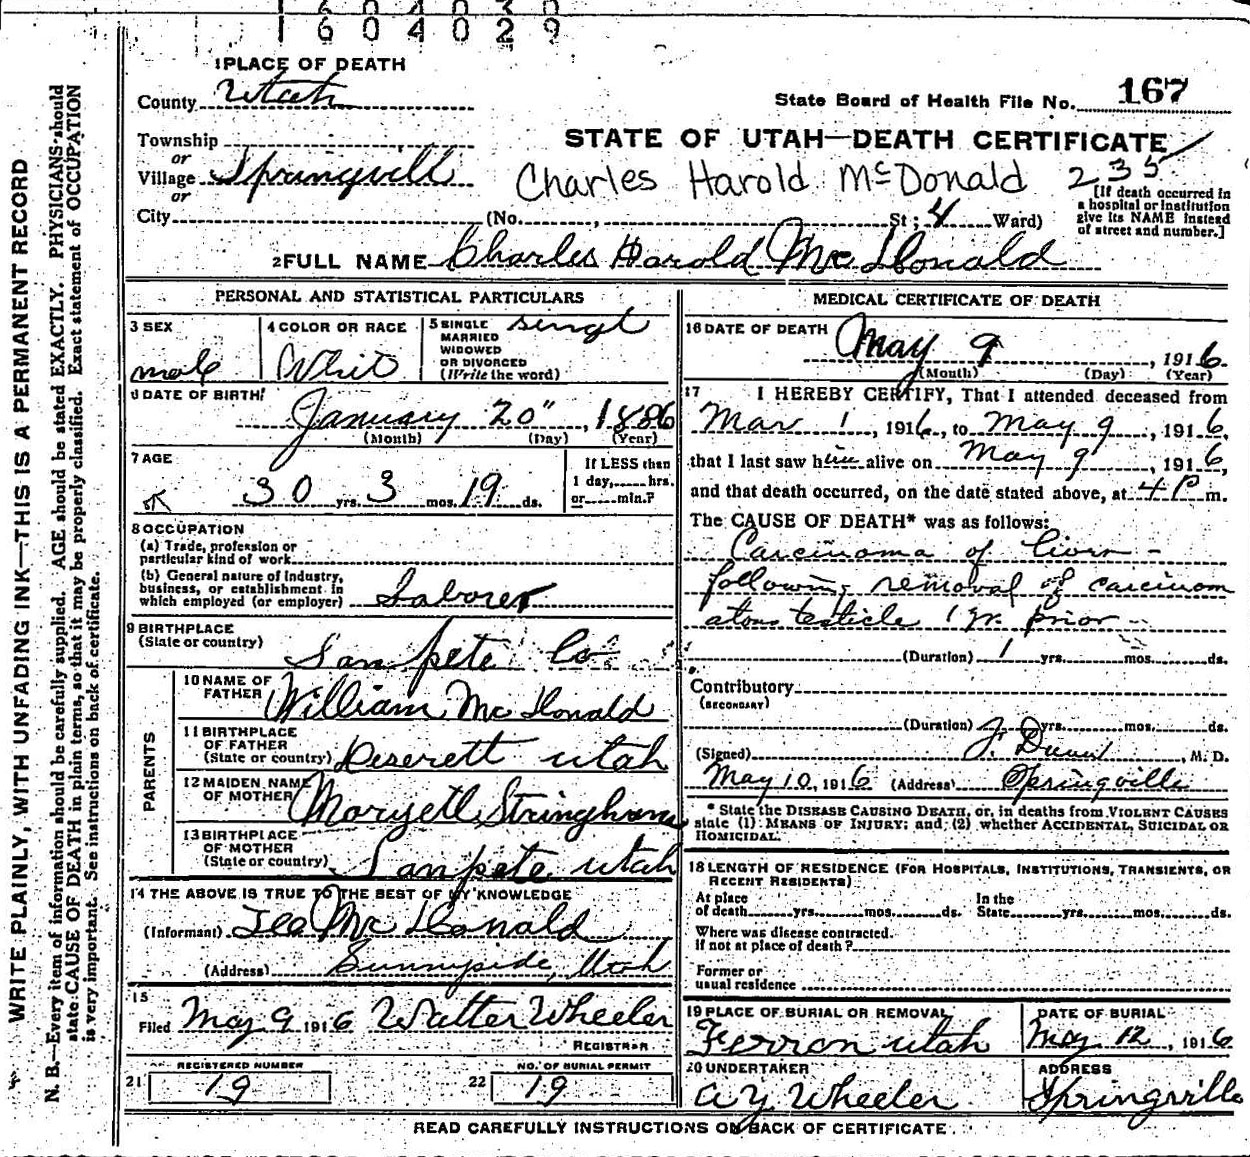 1604029
1 PLACE OF DEATH
County Utah
State Board of Health File No. 167
Township
or
Village Springvill
or
STATE OF UTAH—DEATH CERTIFICATE
Charles Harold McDonald 235
[If death occurred in
a hospital or institution
give its NAME instead
of street and number.]
City (No. , St; 4 Ward)
2 FULL NAME Charles Harold McDonald
PERSONAL AND STATISTICAL PARTICULARS
3 SEX
male
4 COLOR OR RACE
Whit
5 SINGLE
MARRIED
WIDOWED
OR DIVORCED
(Write the word)
singl
6 DATE OF BIRTH
January 20", 1886
(Month) (Day) (Year)
7 AGE
30 yrs. 3 mos. 19 ds.
If LESS than
1 day, hrs.
or min.?
8 OCCUPATION
(a) Trade, profession or
particular kind of work
(b) General nature of industry,
business, or establishment in
which employed (or employer) Laborer
9 BIRTHPLACE
(State or country)
Sanpete Co
PARENTS
10 NAME OF
FATHER William McDonald
11 BIRTHPLACE
OF FATHER
(State or country) Deserett Utah
12 MAIDEN NAME
OF MOTHER Maryett Stringham
13 BIRTHPLACE
OF MOTHER
(State or country) Sanpete Utah
14 THE ABOVE IS TRUE TO THE BEST OF MY KNOWLEDGE
(Informant) McDonald
(Address) Sunnyside, Utah
15
Filed May 9 1916 Walter Wheeler
REGISTRAR
REGISTERED NUMBER
21 19
NO. OF BURIAL PERMIT
22 19
MEDICAL CERTIFICATE OF DEATH
16 DATE OF DEATH
May 9, 1916
(Month) (Day) (Year)
17 I HEREBY CERTIFY, That I attended deceased from
Mar 1, 1916, to May 9, 1916,
that I last saw him alive on May 9, 1916,
and that death occurred, on the date stated above, at 4 P m.
The CAUSE OF DEATH* was as follows:
Carcinoma of liver -
following removal of carcinom
atous testicle 1 yr. prior -
(Duration) 1 yrs. mos. ds.
Contributory
(SECONDARY)
(Duration) yrs. mos. ds.
(Signed) , M. D.
May 10, 1916 (Address) Springville
* State the DISEASE CAUSING DEATH, or, in deaths from VIOLENT CAUSES
state (1) MEANS OF INJURY; and (2) whether ACCIDENTAL, SUICIDAL OR
HOMICIDAL.
18 LENGTH OF RESIDENCE (FOR HOSPITALS, INSTITUTIONS, TRANSIENTS, OR
RECENT RESIDENTS)
At place
of death yrs. mos. ds.
In the
State yrs. mos. ds.
Where was disease contracted,
if not at place of death?
Former or
usual residence
19 PLACE OF BURIAL OR REMOVAL
Ferron Utah
DATE OF BURIAL
May 12, 1916
20 UNDERTAKER
A Y Wheeler
ADDRESS
Springville
READ CAREFULLY INSTRUCTIONS ON BACK OF CERTIFICATE
WRITE PLAINLY, WITH UNFADING INK—THIS IS A PERMANENT RECORD
N. B.—Every item of information should be carefully supplied. AGE should be stated EXACTLY. PHYSICIANS should
state CAUSE OF DEATH in plain terms, so that it may be properly classified. Exact statement of OCCUPATION
is very important. See instructions on back of certificate.